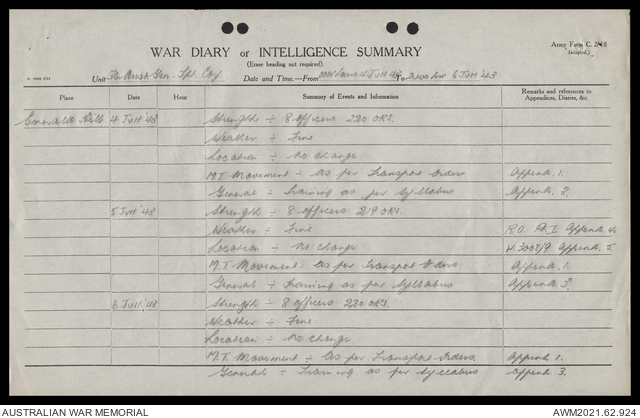 Army Form C. 2118
(adapted)
WAR DIARY or INTELLIGENCE SUMMARY
(Erase heading not required).
Unit Aust Gen. Tpt Coy Date and Time.—From 4 Jun '43 To 6 Jun '43
Place Date Hour Summary of Events and Information Remarks and references to Appendices, Diaries, &c.
Emerald Hill 4 Jun '43 Strength ÷ 8 Officers 220 ORS.
Weather ÷ Fine
Location ÷ No change
M.T. Movement ÷ As per Transport Orders Append. 1.
General ÷ Training as per Syllabus Append. 3.
5 Jun '43 Strength ÷ 8 Officers 219 ORS.
Weather ÷ Fine R.O. Append. 4.
Location ÷ No change Append. 5.
M.T. Movement ÷ As per Transport Orders Append. 1.
General ÷ Training as per Syllabus Append. 3.
6 Jun '43 Strength ÷ 8 Officers 220 ORS.
Weather ÷ Fine
Location ÷ No change
M.T. Movement ÷ As per Transport Orders. Append 1.
General ÷ Training as per Syllabus Append 3.
AUSTRALIAN WAR MEMORIAL AWM2021.62.924